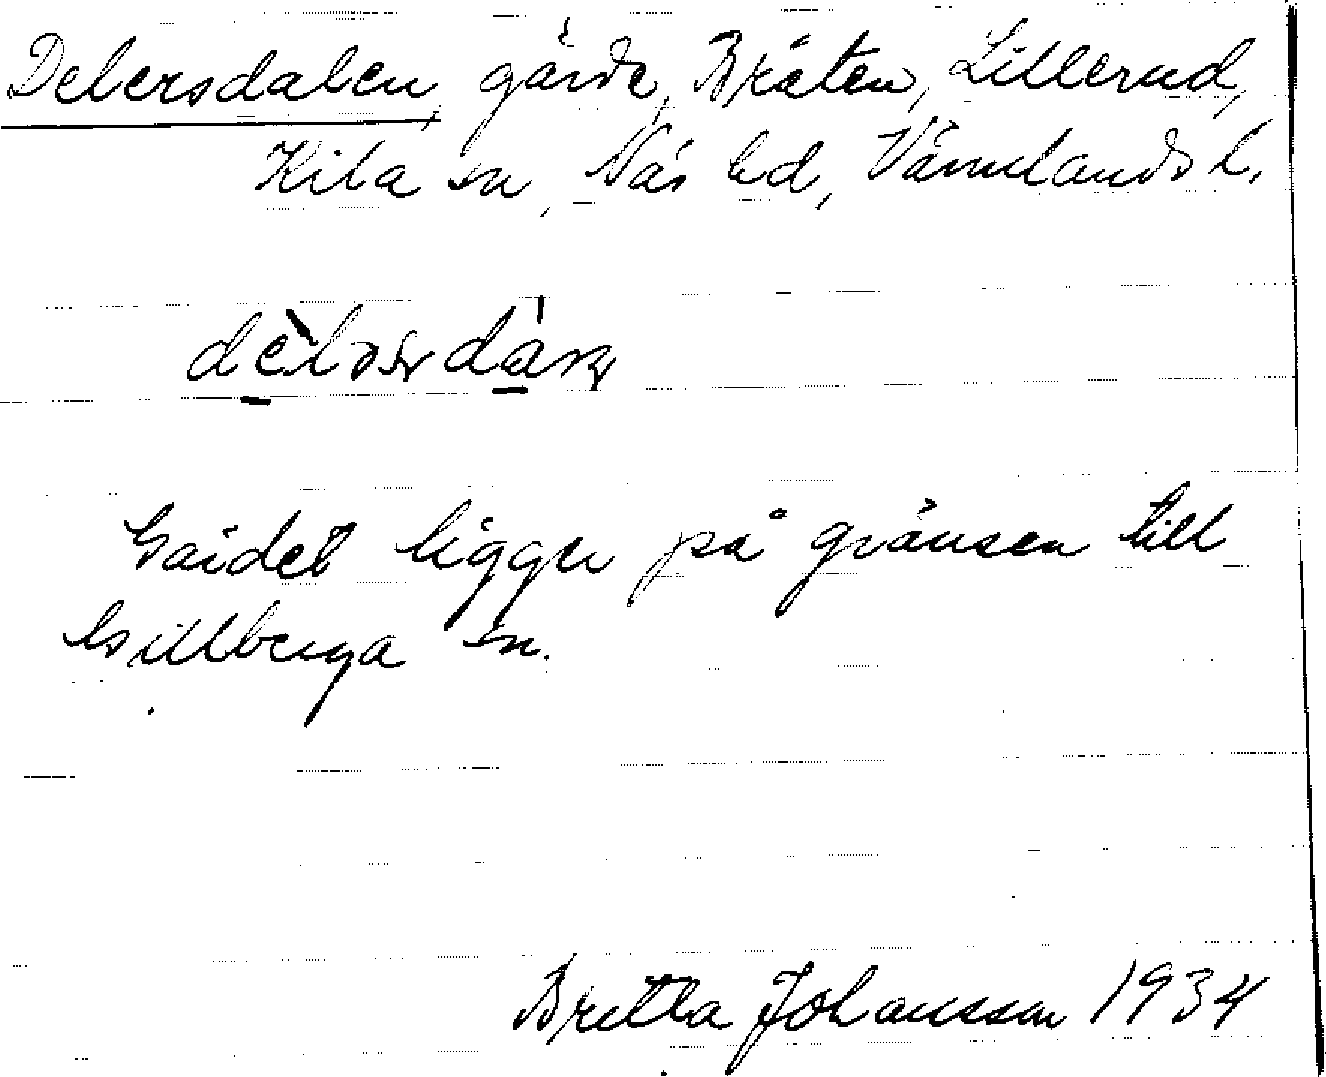 Delersdalen, gärde, Bråten, Lillerud,
Kila sn, Näs hd, Värmlands l.
Gärdet ligger på gränsen till
Gillberga sn.
Britta Johansson 1934